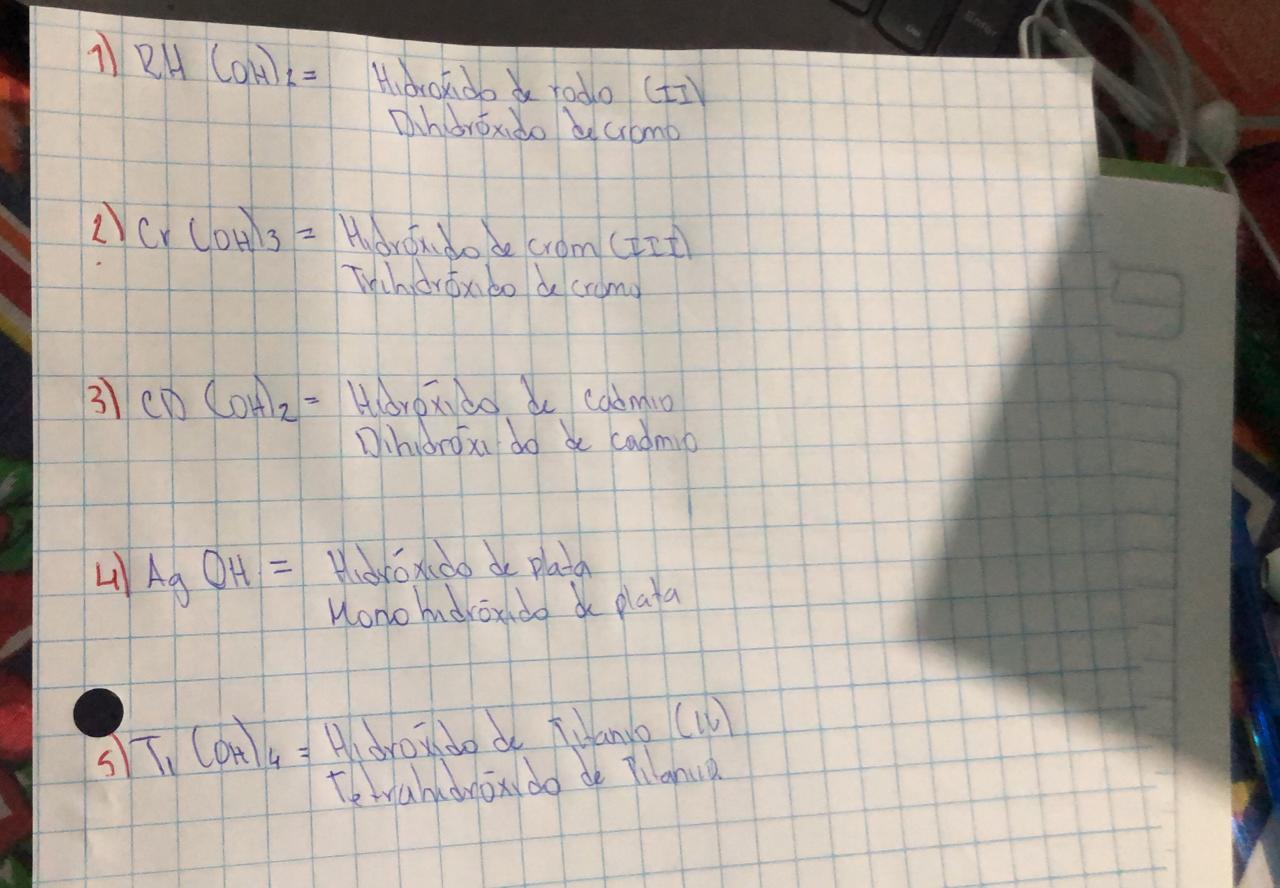 1) RH (OH)2 = Hidróxido de rodio (II)
Dihidróxido de cromo
2) Cr (OH)3 = Hidróxido de crom (III)
Trihidróxido de cromo
3) CD (OH)2 = Hidróxido de cadmio
Dihidróxido de cadmio
4) Ag OH = Hidróxido de plata
Mono hidróxido de plata
5) Ti (OH)4 = Hidróxido de Titanio (IV)
Tetrahidróxido de Titanio